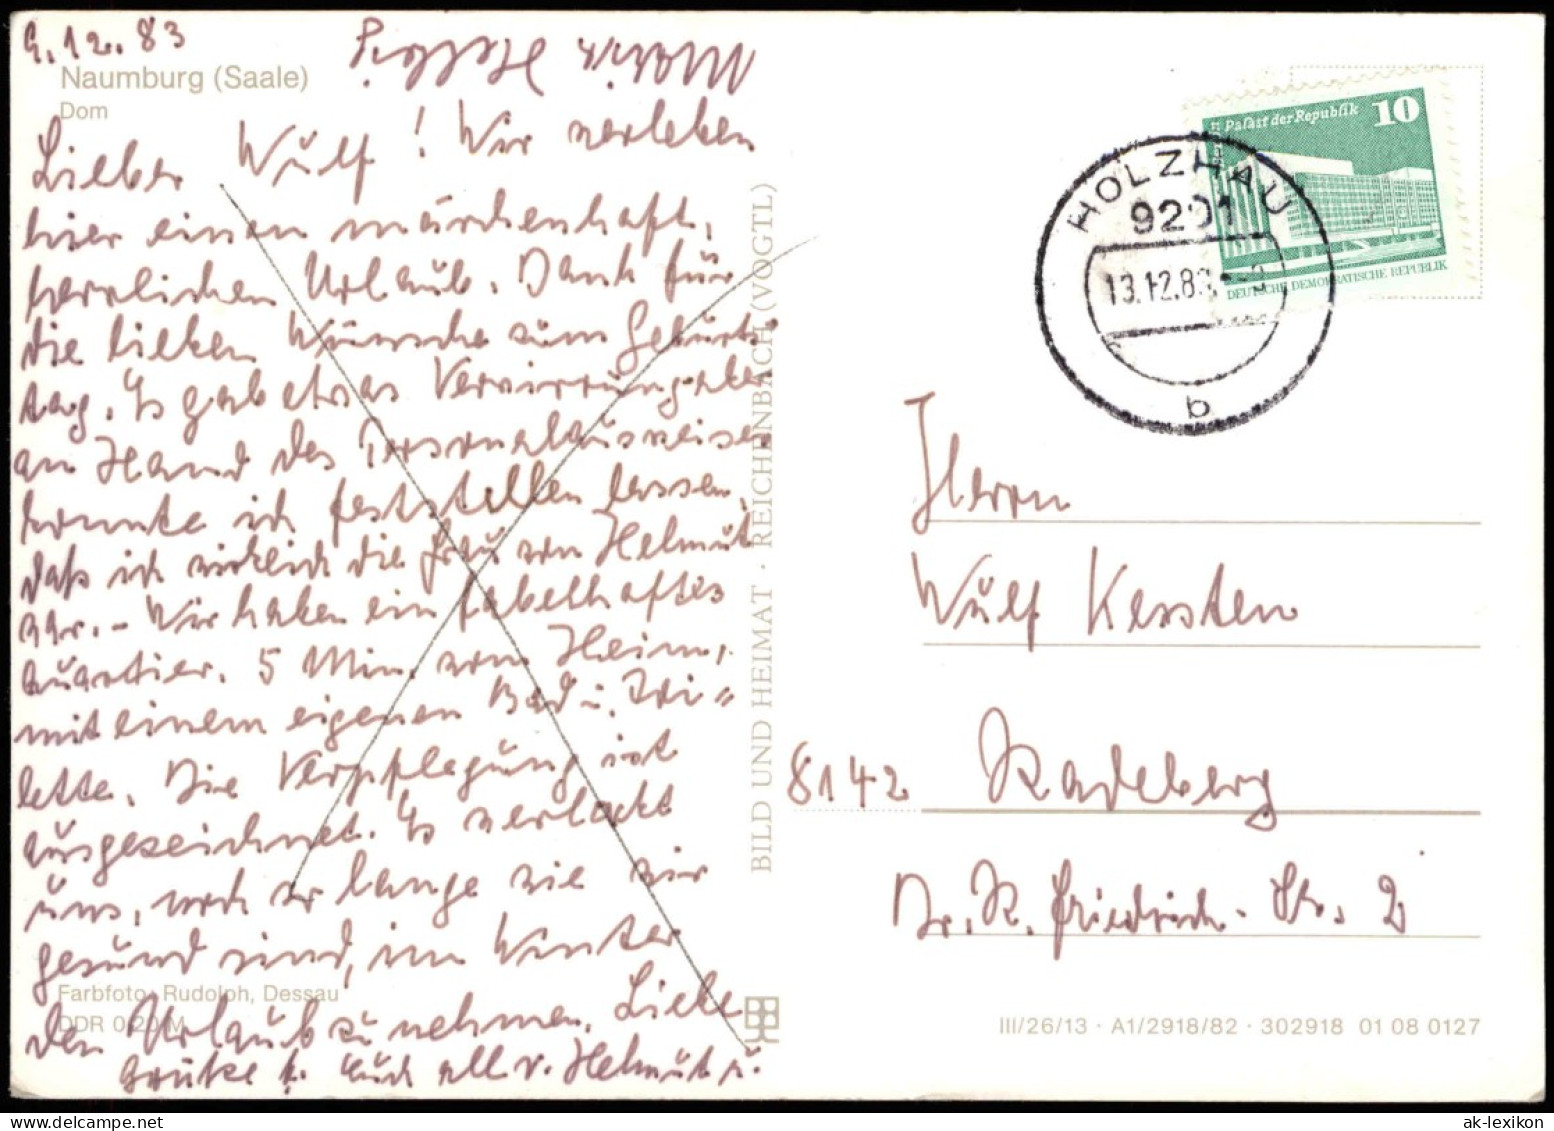 9.12.83
Naumburg (Saale)
Dom
Lieber Wulf! Wir verleben
hier einen märchenhaft,
herrlichen Urlaub. Dank für
die lieben Wünsche zum Geburts
tag. Es gab etwas Verwirrung, aber
an Hand des Personalausweises
konnte ich feststellen lassen,
daß ich wirklich die Frau von Helmut
war. – Wir haben ein fabelhaftes
Quartier. 5 Min. vom Heim,
mit einem eigenen Bad u. Toi=
lette. Die Verpflegung ist
ausgezeichnet. Es verlockt
uns, noch so lange wie wir
gesund sind, im Winter
den Urlaub zu nehmen. Liebe
Grüße f. Euch all v. Helmut u.
Farbfoto: Rudolph, Dessau
DDR 0,20 M
BILD UND HEIMAT · REICHENBACH (VOGTL)
Palast der Republik 10
DEUTSCHE DEMOKRATISCHE REPUBLIK
HOLZHAU
9201
13.12.83
b
Herrn
Wulf Kersten
8142 Radeberg
Dr. R. Friedrich-Str. 2
III/26/13 · A1/2918/82 · 302918 01 08 0127
ak-lexikon.com